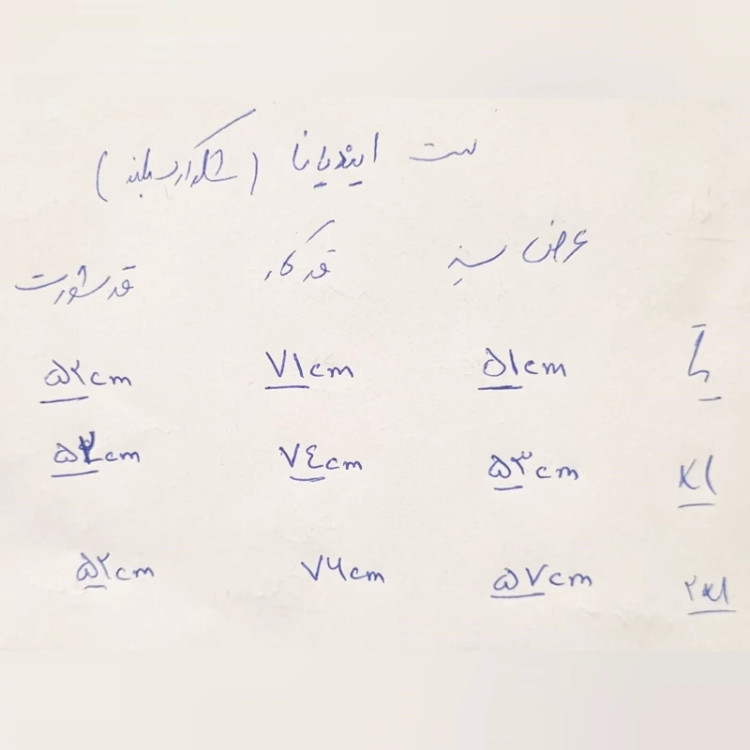 ست ایندیانا (شلوارک بلند)
عرض سینه قد کار قد شورت
L ۵۱cm ۷۱cm ۵۲cm
XL ۵۳cm ۷۴cm ۵۲cm
۲XL ۵۷cm ۷۶cm ۵۲cm